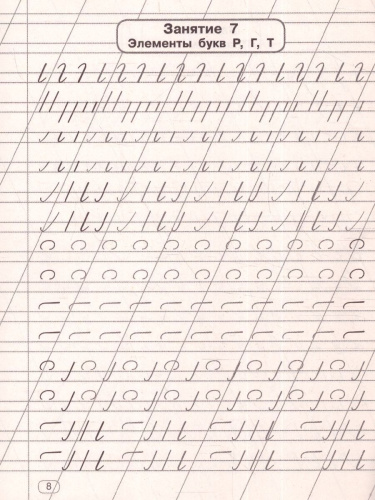 Занятие 7
Элементы букв Р, Г, Т
8